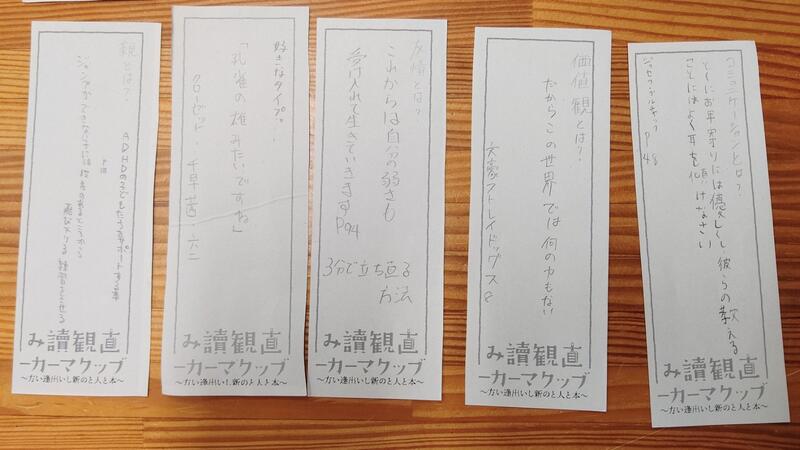 親とは？
ジャンプができない子には段差のあるところから
飛び下りる練習をさせる
ADHDの子どもたちをサポートする本
直観讀み
ブックマーカー
～本と人との新しい出逢い方～
好きなタイプ？
「孔雀の雄みたいですね」
クローゼット・千早茜・六二
直観讀み
ブックマーカー
～本と人との新しい出逢い方～
友情とは？
これからは自分の弱さも
受け入れて生きていきます
P94
3分で立ち直る
方法
直観讀み
ブックマーカー
～本と人との新しい出逢い方～
価値観とは？
だからこの世界では何の力もない
文豪ストレイドッグス 8
直観讀み
ブックマーカー
～本と人との新しい出逢い方～
コミュニケーションとは？
とくにお年寄りには優しくし 彼らの教える
ことにはよく耳を傾けなさい
ジョセフ・ブルチャック
P48
直観讀み
ブックマーカー
～本と人との新しい出逢い方～